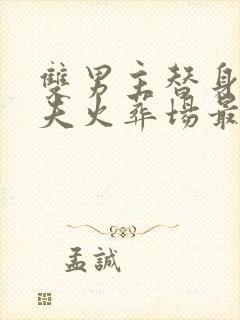 雙男主替身
夫火葬場最
孟誠